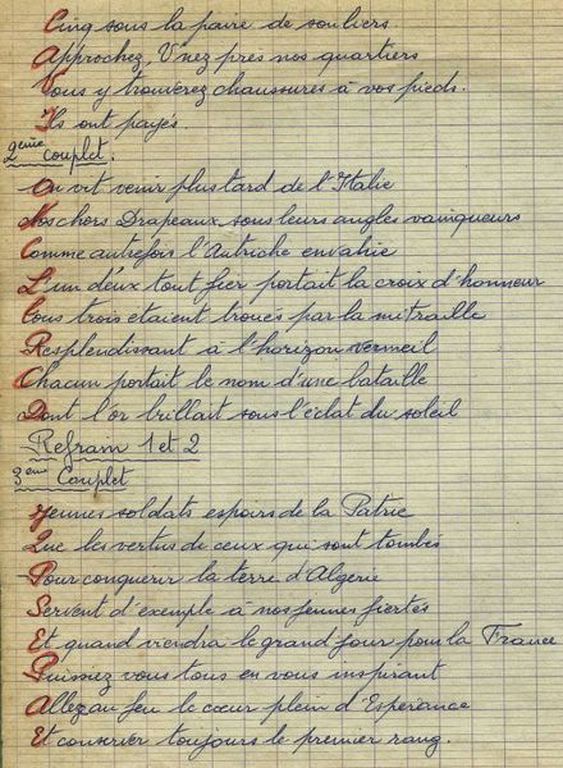 Cinq sous la paire de souliers
Approchez, V'nez près nos quartiers
Vous y trouverez chaussures à vos pieds.
Ils ont payés.
2eme couplet.
On vit venir plus tard de l'Italie
Nos chers Drapeaux sous leurs angles vainqueurs
Comme autrefois l'Autriche envahie
L'un d'eux tout fier portait la croix d'honneur
Tous trois etaient troués par la mitraille
Resplendissant à l'horizon vermeil
Chacun portait le nom d'une bataille
Dont l'or brillait sous l'éclat du soleil
Refrain 1 et 2
3eme Couplet
Jeunes soldats espoirs de la Patrie
Que les vertus de ceux qui sont tombés
Pour conquerir la terre d'Algerie
Servent d'exemple à nos jeunes fiertés
Et quand viendra le grand jour pour la France
Puissiez vous tous en vous inspirant
Allez au feu le cœur plein d'Espérance
Et conserver toujours le premier rang.